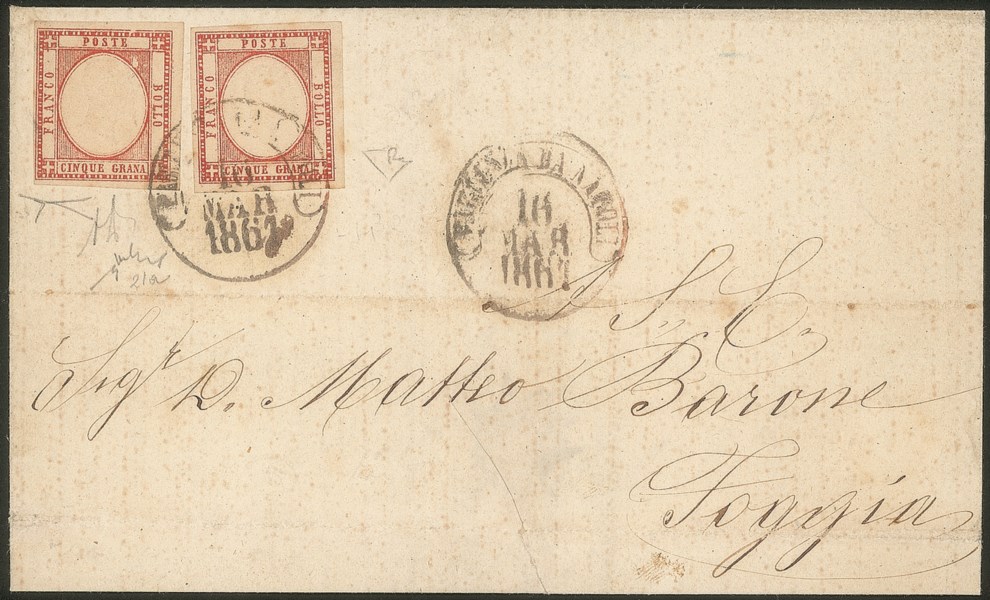 POSTE
FRANCO
BOLLO
CINQUE GRANA
POSTE
FRANCO
BOLLO
CINQUE GRANA
MAR
1861
16
MAR
1861
S. E.
Sigr D. Matteo Barone
Foggia